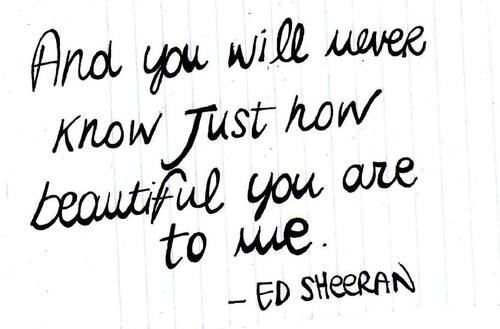 And you will never
know Just how
beautiful you are
to me.
- ED SHEERAN